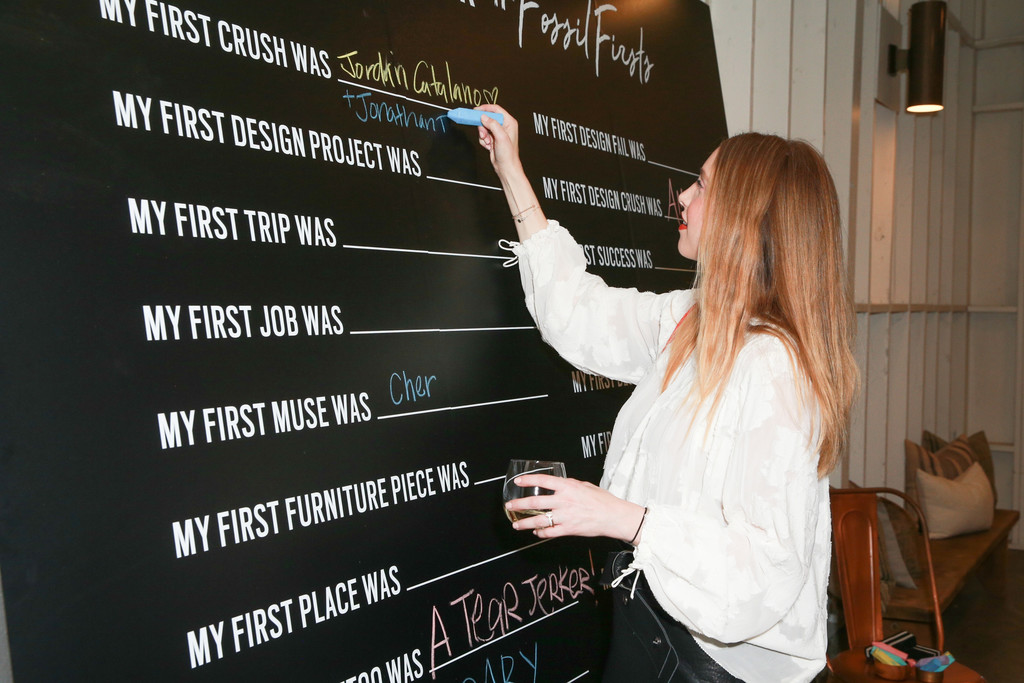 #FossilFirsts
MY FIRST CRUSH WAS Jordan Catalano♡
+Jonathan T
MY FIRST DESIGN PROJECT WAS
MY FIRST TRIP WAS
MY FIRST JOB WAS
MY FIRST MUSE WAS Cher
MY FIRST FURNITURE PIECE WAS
MY FIRST PLACE WAS
WAS A TEAR JERKER!
MY FIRST DESIGN FAIL WAS
MY FIRST DESIGN CRUSH WAS
SUCCESS WAS
MY FIRST
MY